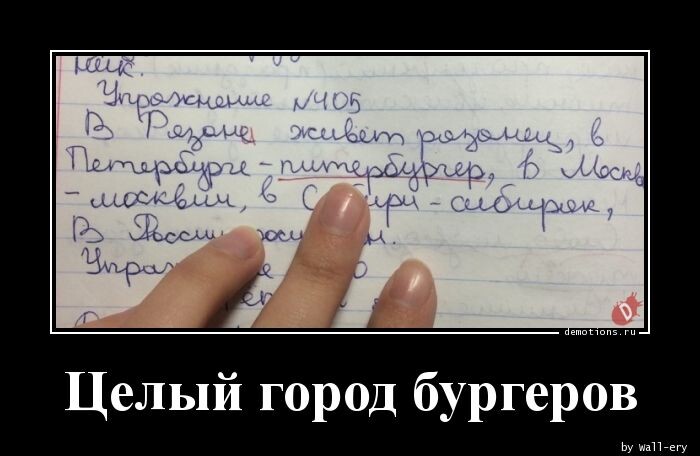 ник.
Упражнение №405
В Рязане живёт рязанец, в
Петербурге - питербургер, в Москве
- москвич, в Сибири - сибиряк,
В России
№
demotions.ru
Целый город бургеров
by Wall-ery